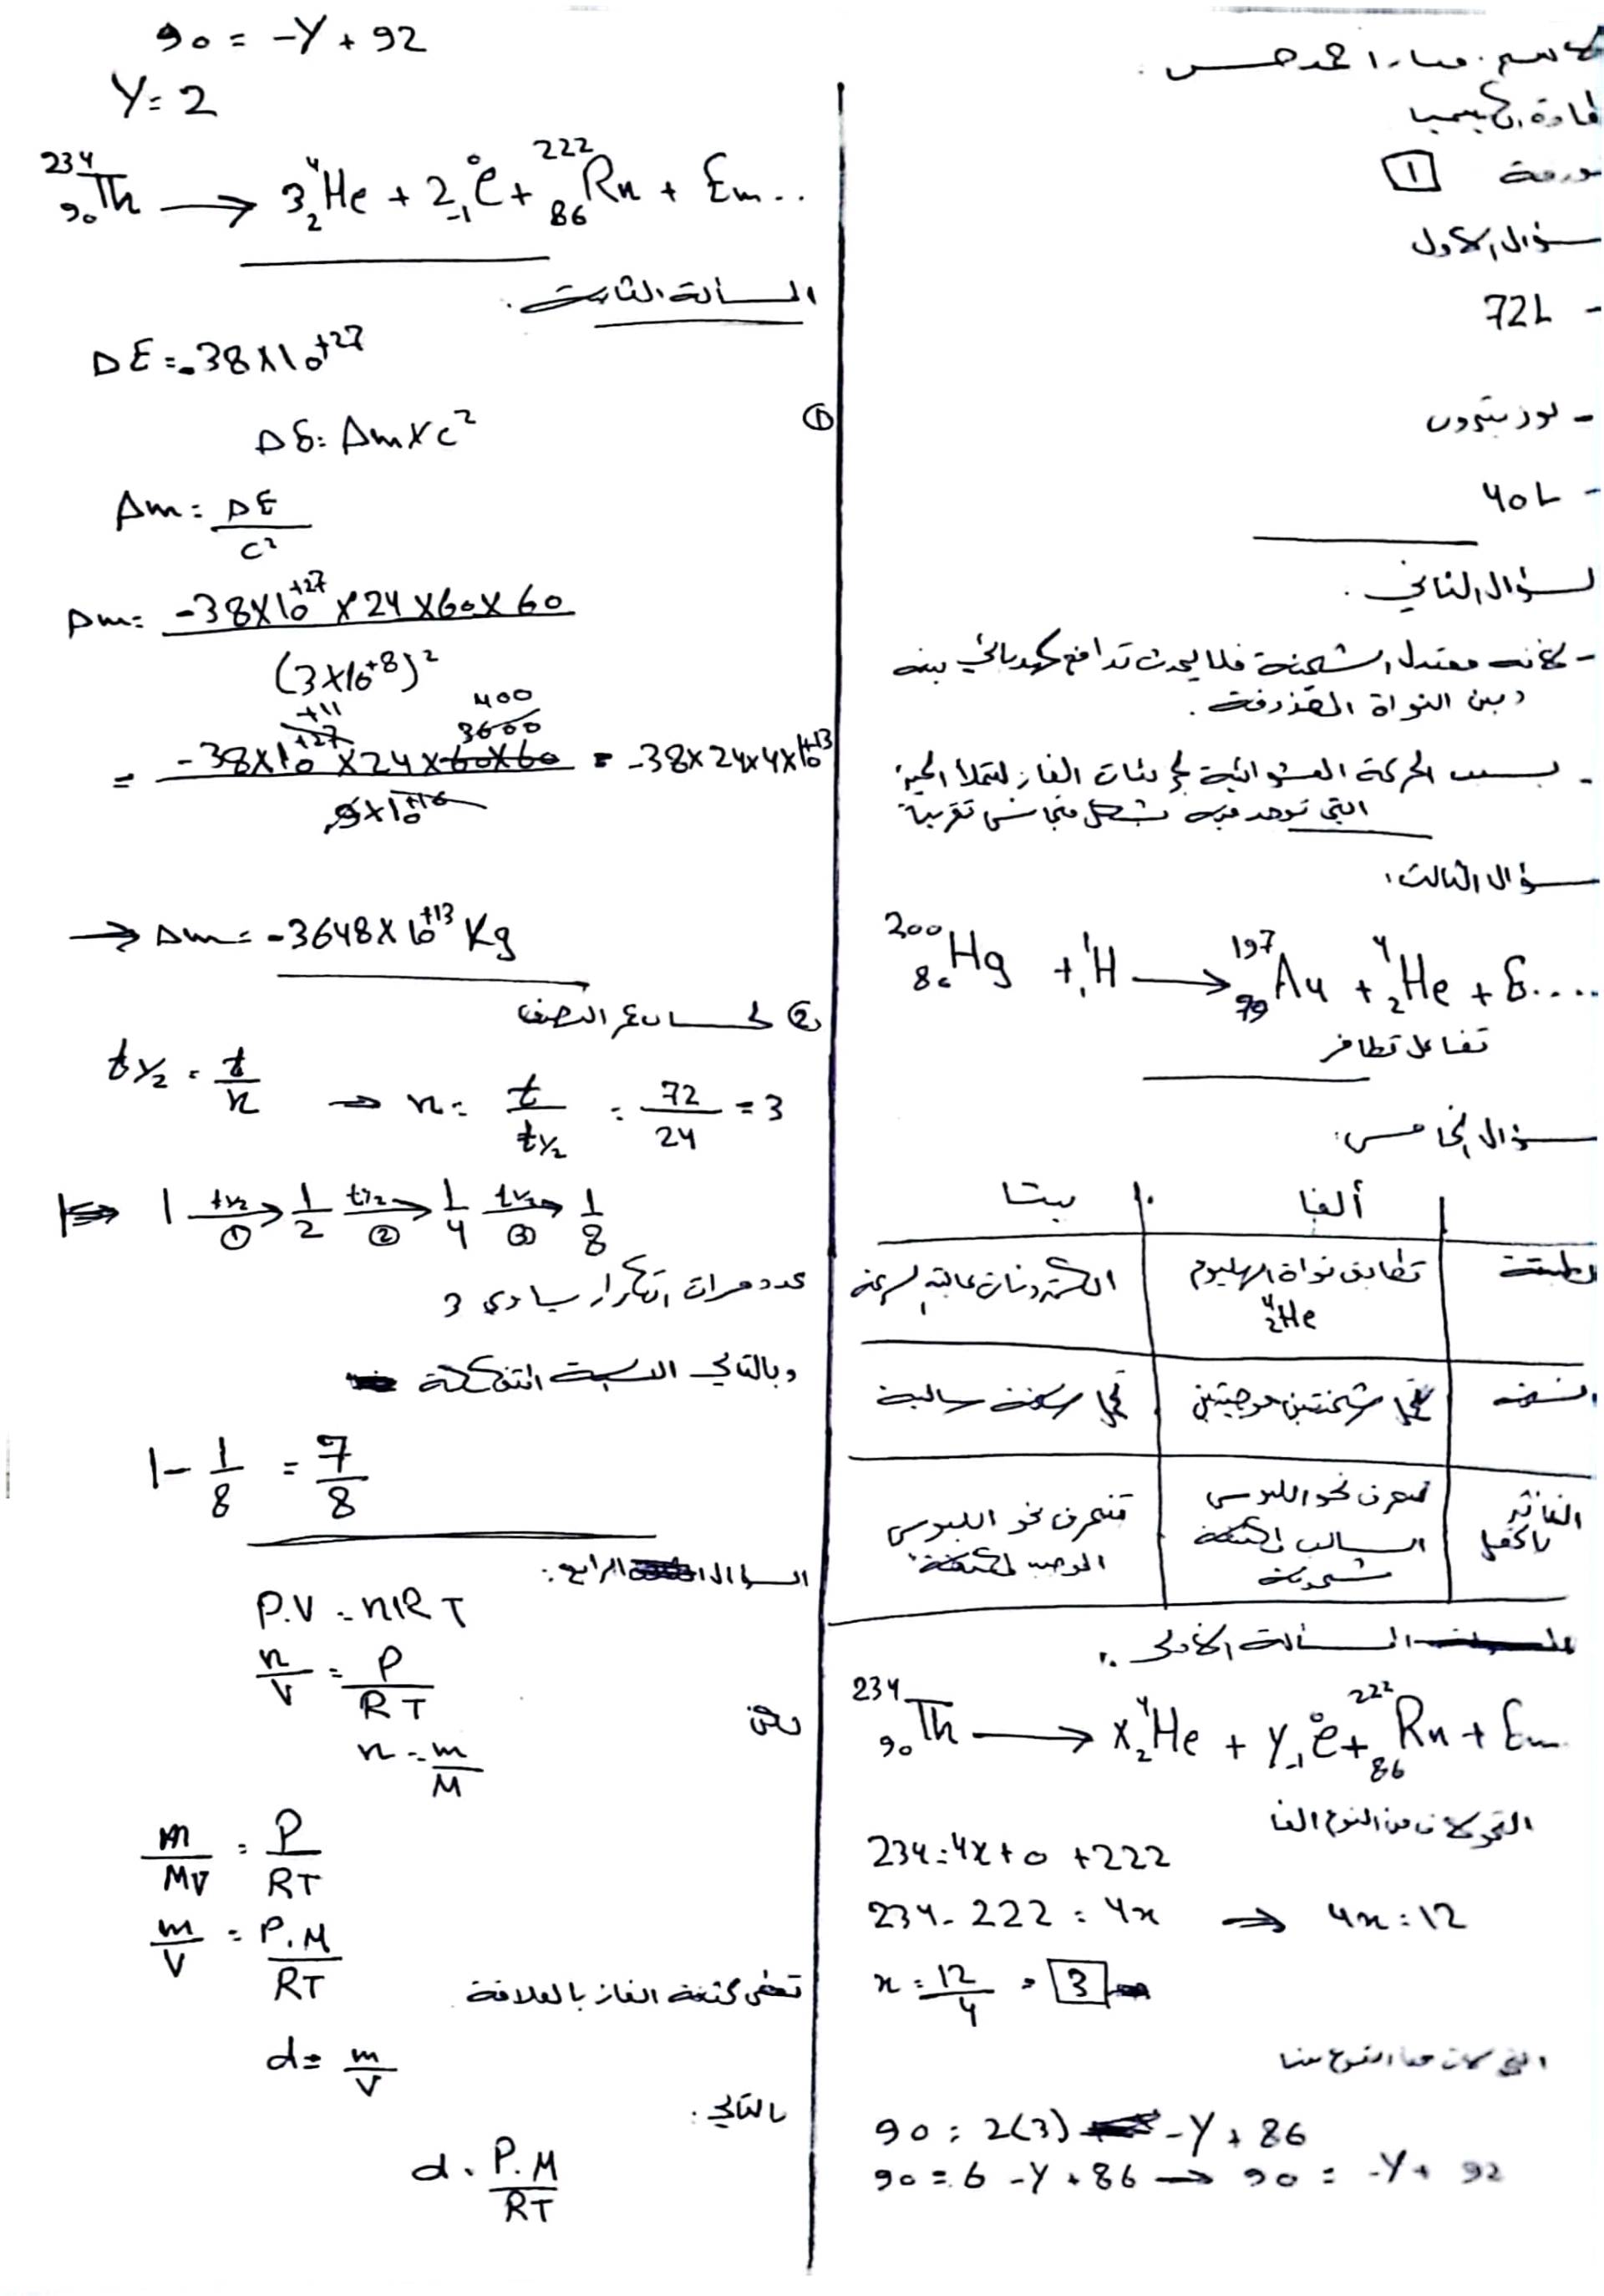 الاسم: سارا محمد حسن
مادة الكيمياء
ورقة 1
السؤال الأول
- 72L
- بوزيترون
- 40L
السؤال الثاني.
- لأنه معتدل الشحنة فلا يحدث تدافع كهربائي بينه
وبين النواة المقذوفة.
- بسبب الحركة العشوائية لجزيئات الغاز لتملأ الحيز
التي توجد فيه بشكل متجانس تقريباً
السؤال الثالث:
²⁰⁰₈₀Hg + ¹₁H → ¹⁹⁷₇₉Au + ⁴₂He + E....
تفاعل تطافر
السؤال الخامس:
ألفا بيتا
الطبيعة تطابق نواة الهليوم ⁴₂He الكترونات عالية السرعة
الشحنة تحمل شحنتين موجبتين تحمل شحنة سالبة
التأثر بالحقل تنحرف نحو اللبوس السالب لمكثفة مشحونة تنحرف نحو اللبوس الموجب لمكثفة
المسألة الأولى:
²³⁴₉₀Th → x ⁴₂He + y ⁰₋₁e + ²²²₈₆Rn + Em..
التحولات من النوع الفا
234 = 4x + 0 + 222
234 - 222 = 4x ⇒ 4x = 12
x = 12/4 = 3
التحولات من النوع بيتا
90 = 2(3) - Y + 86
90 = 6 - Y + 86 → 90 = -Y + 92
90 = -Y + 92
Y = 2
²³⁴₉₀Th → 3 ⁴₂He + 2 ⁰₋₁e + ²²²₈₆Rn + Em..
المسألة الثانية.
ΔE = -38×10⁺²⁷
① ΔE = Δm×c²
Δm = ΔE/c²
Δm = -38×10⁺²⁷ × 24×60×60 / (3×10⁺⁸)²
= -38×10⁺²⁷ ⁺¹¹ × 24×60×60 3600 400 / 9×10⁺¹⁶ = -38×24×4×10⁺¹³
→ Δm = -3648×10⁺¹³ Kg
② لحساب عمر النصف
t½ = t/n ⇒ n = t/t½ = 72/24 = 3
⇒ 1 —t½ ①→ 1/2 —t½ ②→ 1/4 —t½ ③→ 1/8
عدد مرات التكرار يساوي 3
وبالتالي النسبة المتفككة
1 - 1/8 = 7/8
السؤال الرابع:
P.V = nRT
n/V = P/RT
n = m/M
m/MV = P/RT
m/V = P.M/RT
تعطى كثافة الغاز بالعلاقة
d = m/V
بالتالي:
d = P.M/RT